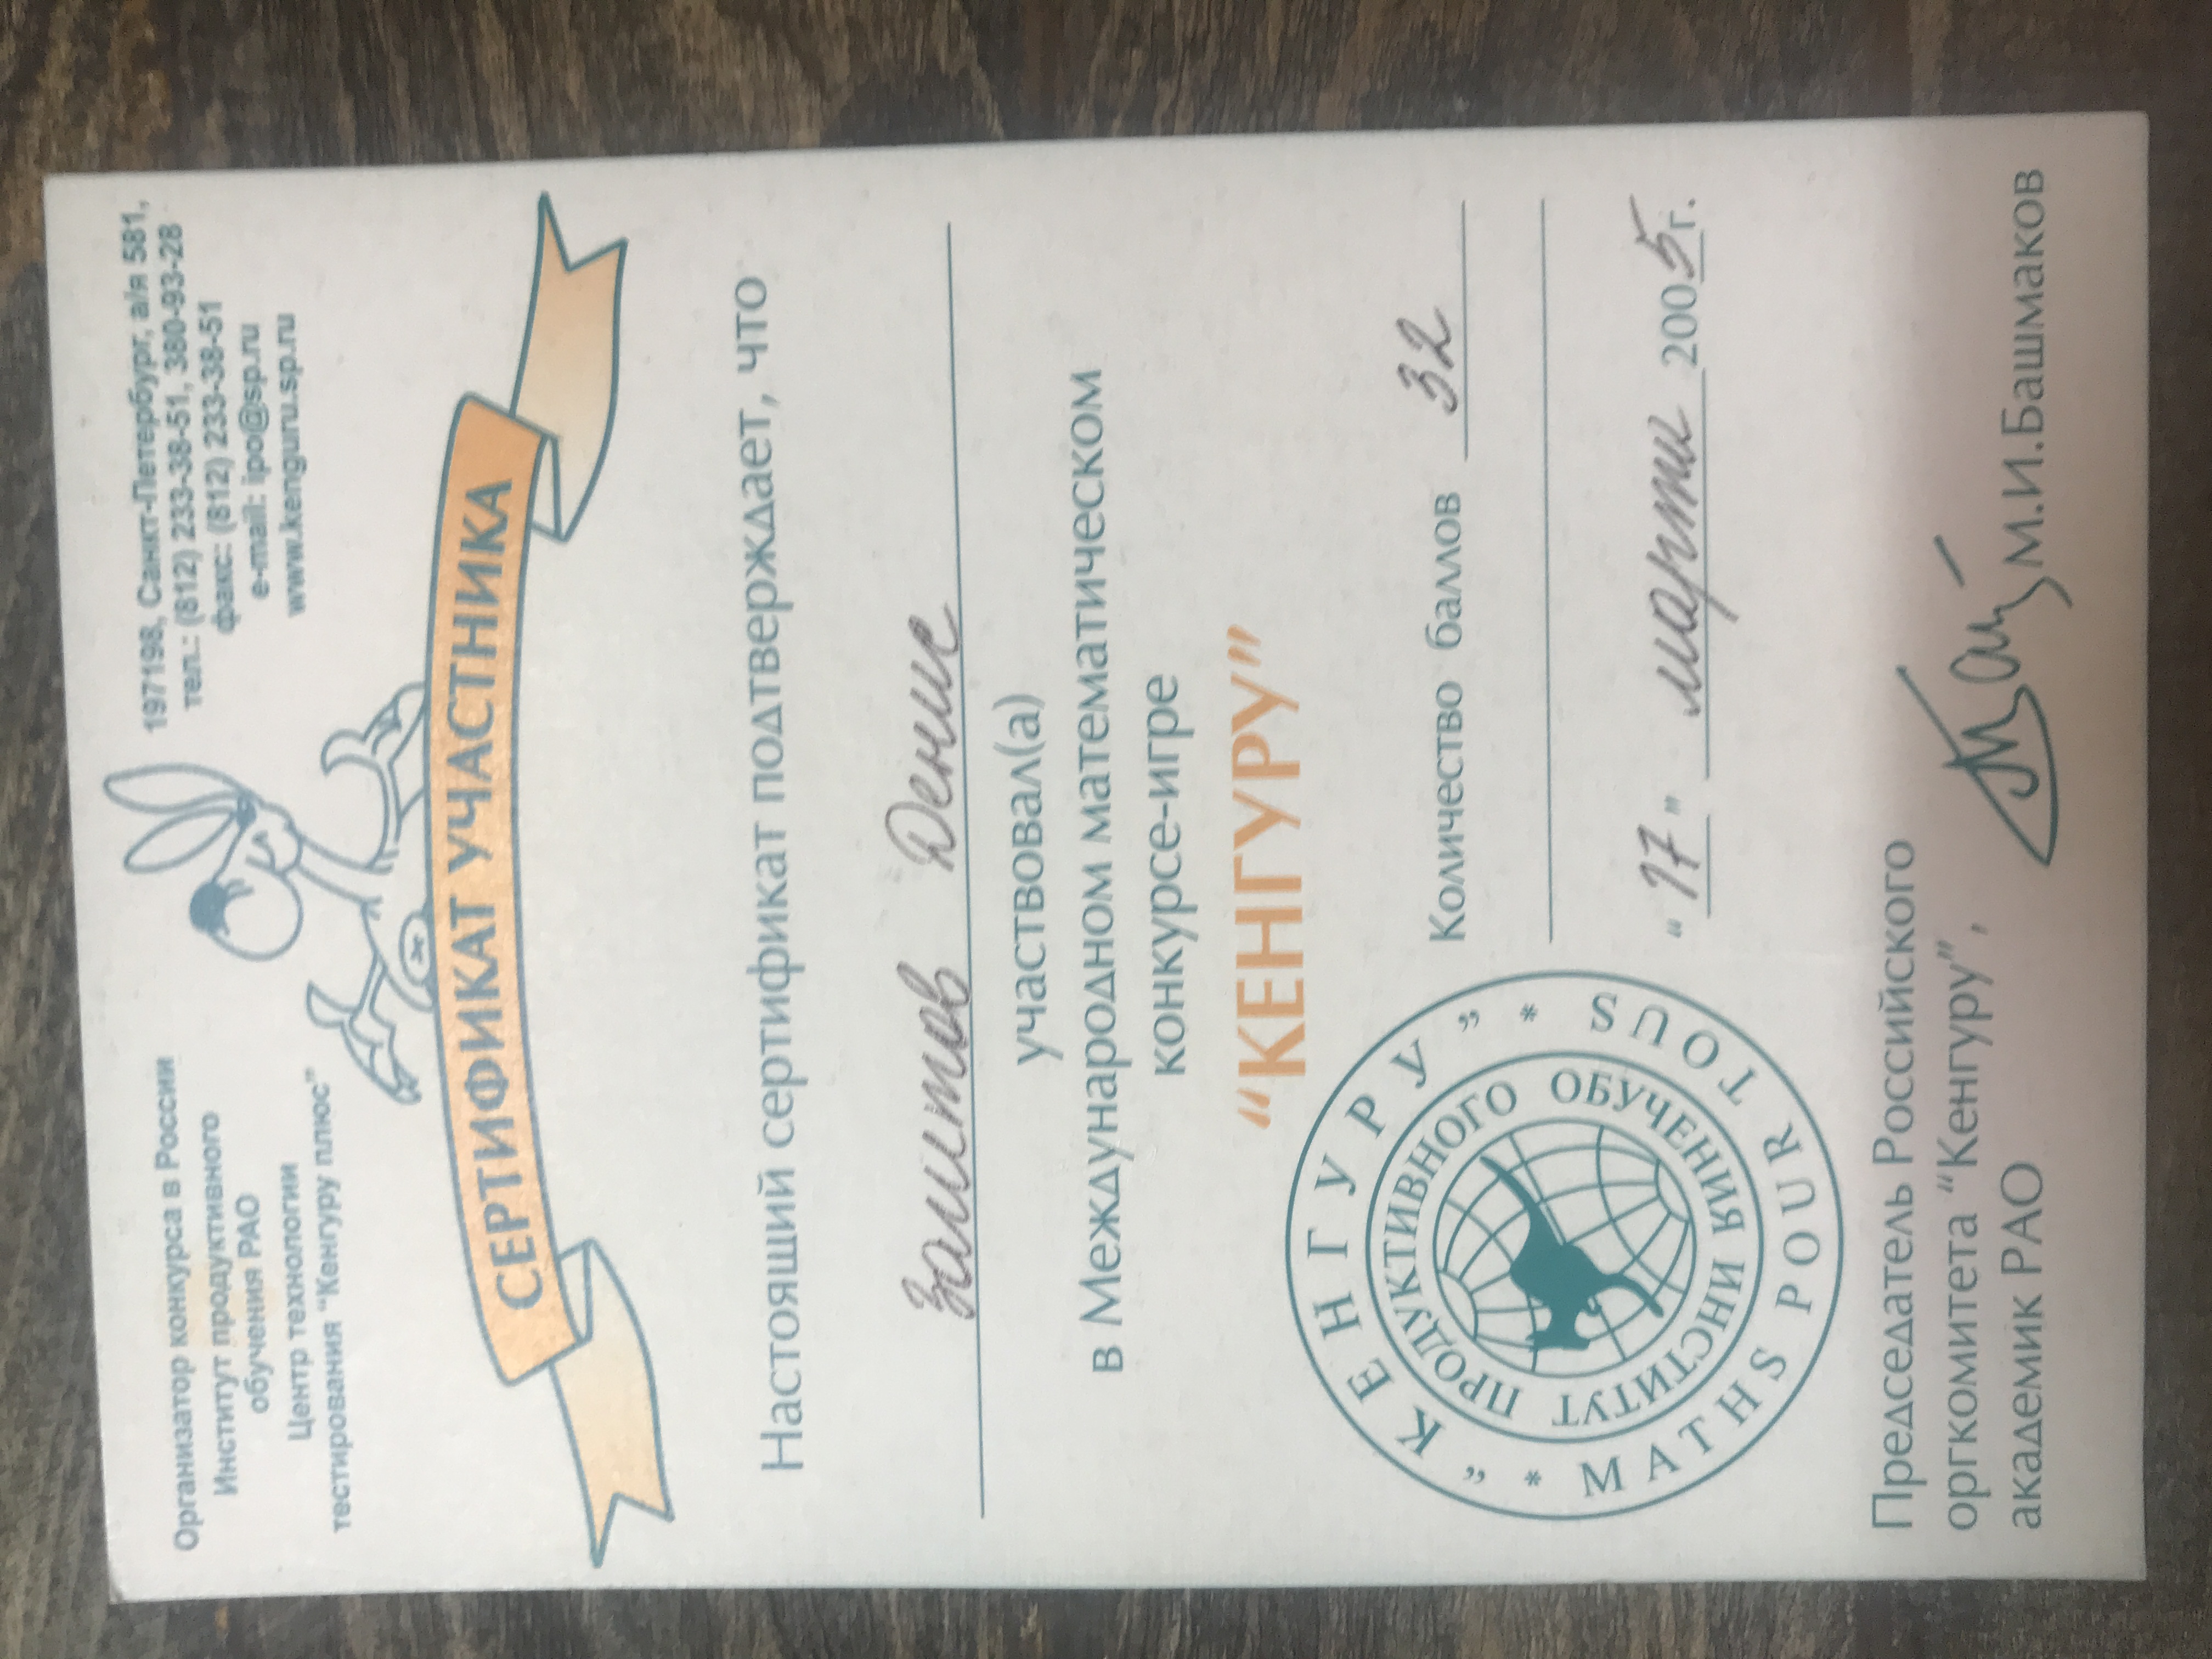 Организатор конкурса в России
Институт продуктивного
обучения РАО
Центр технологии
тестирования “Кенгуру плюс”
197198, Санкт-Петербург, а/я 581,
тел.: (812) 233-38-51, 380-93-28
факс: (812) 233-38-51
e-mail: ipo@sp.ru
www.kenguru.sp.ru
СЕРТИФИКАТ УЧАСТНИКА
Настоящий сертификат подтверждает, что
Заитов Денис
участвовал(а)
в Международном математическом
конкурсе-игре
“КЕНГУРУ”
“КЕНГУРУ” * MATHS POUR TOUS *
ИНСТИТУТ ПРОДУКТИВНОГО ОБУЧЕНИЯ
Количество баллов 32
“17” марта 2005г.
Председатель Российского
оргкомитета “Кенгуру”,
академик РАО
М.И.Башмаков